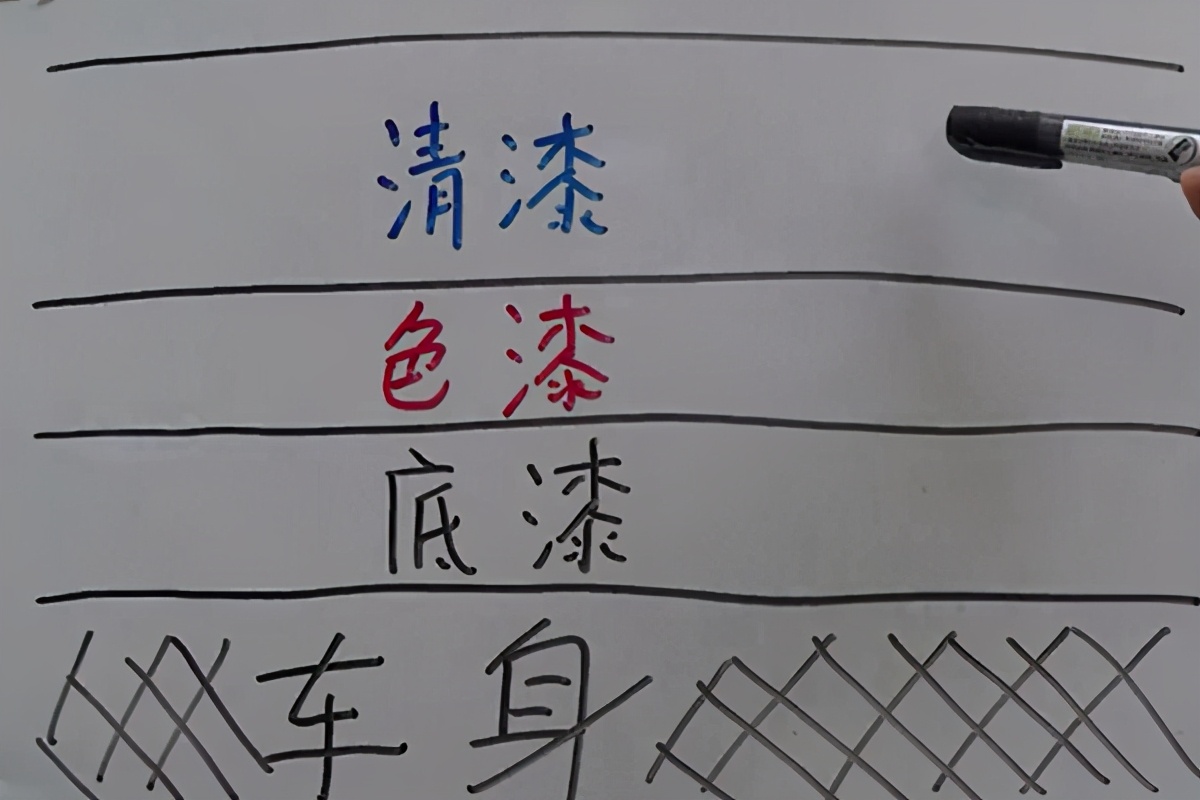 清漆
色漆
底漆
车身